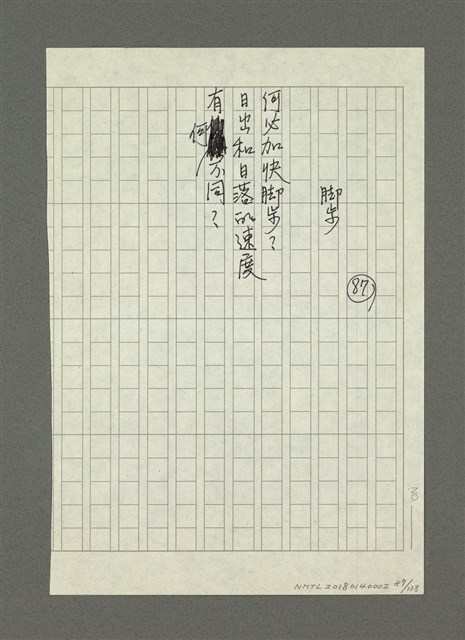 87
脚步
何必加快脚步？
日出和日落的速度
有何不同？
NO.
NMTL20180140002 87/128